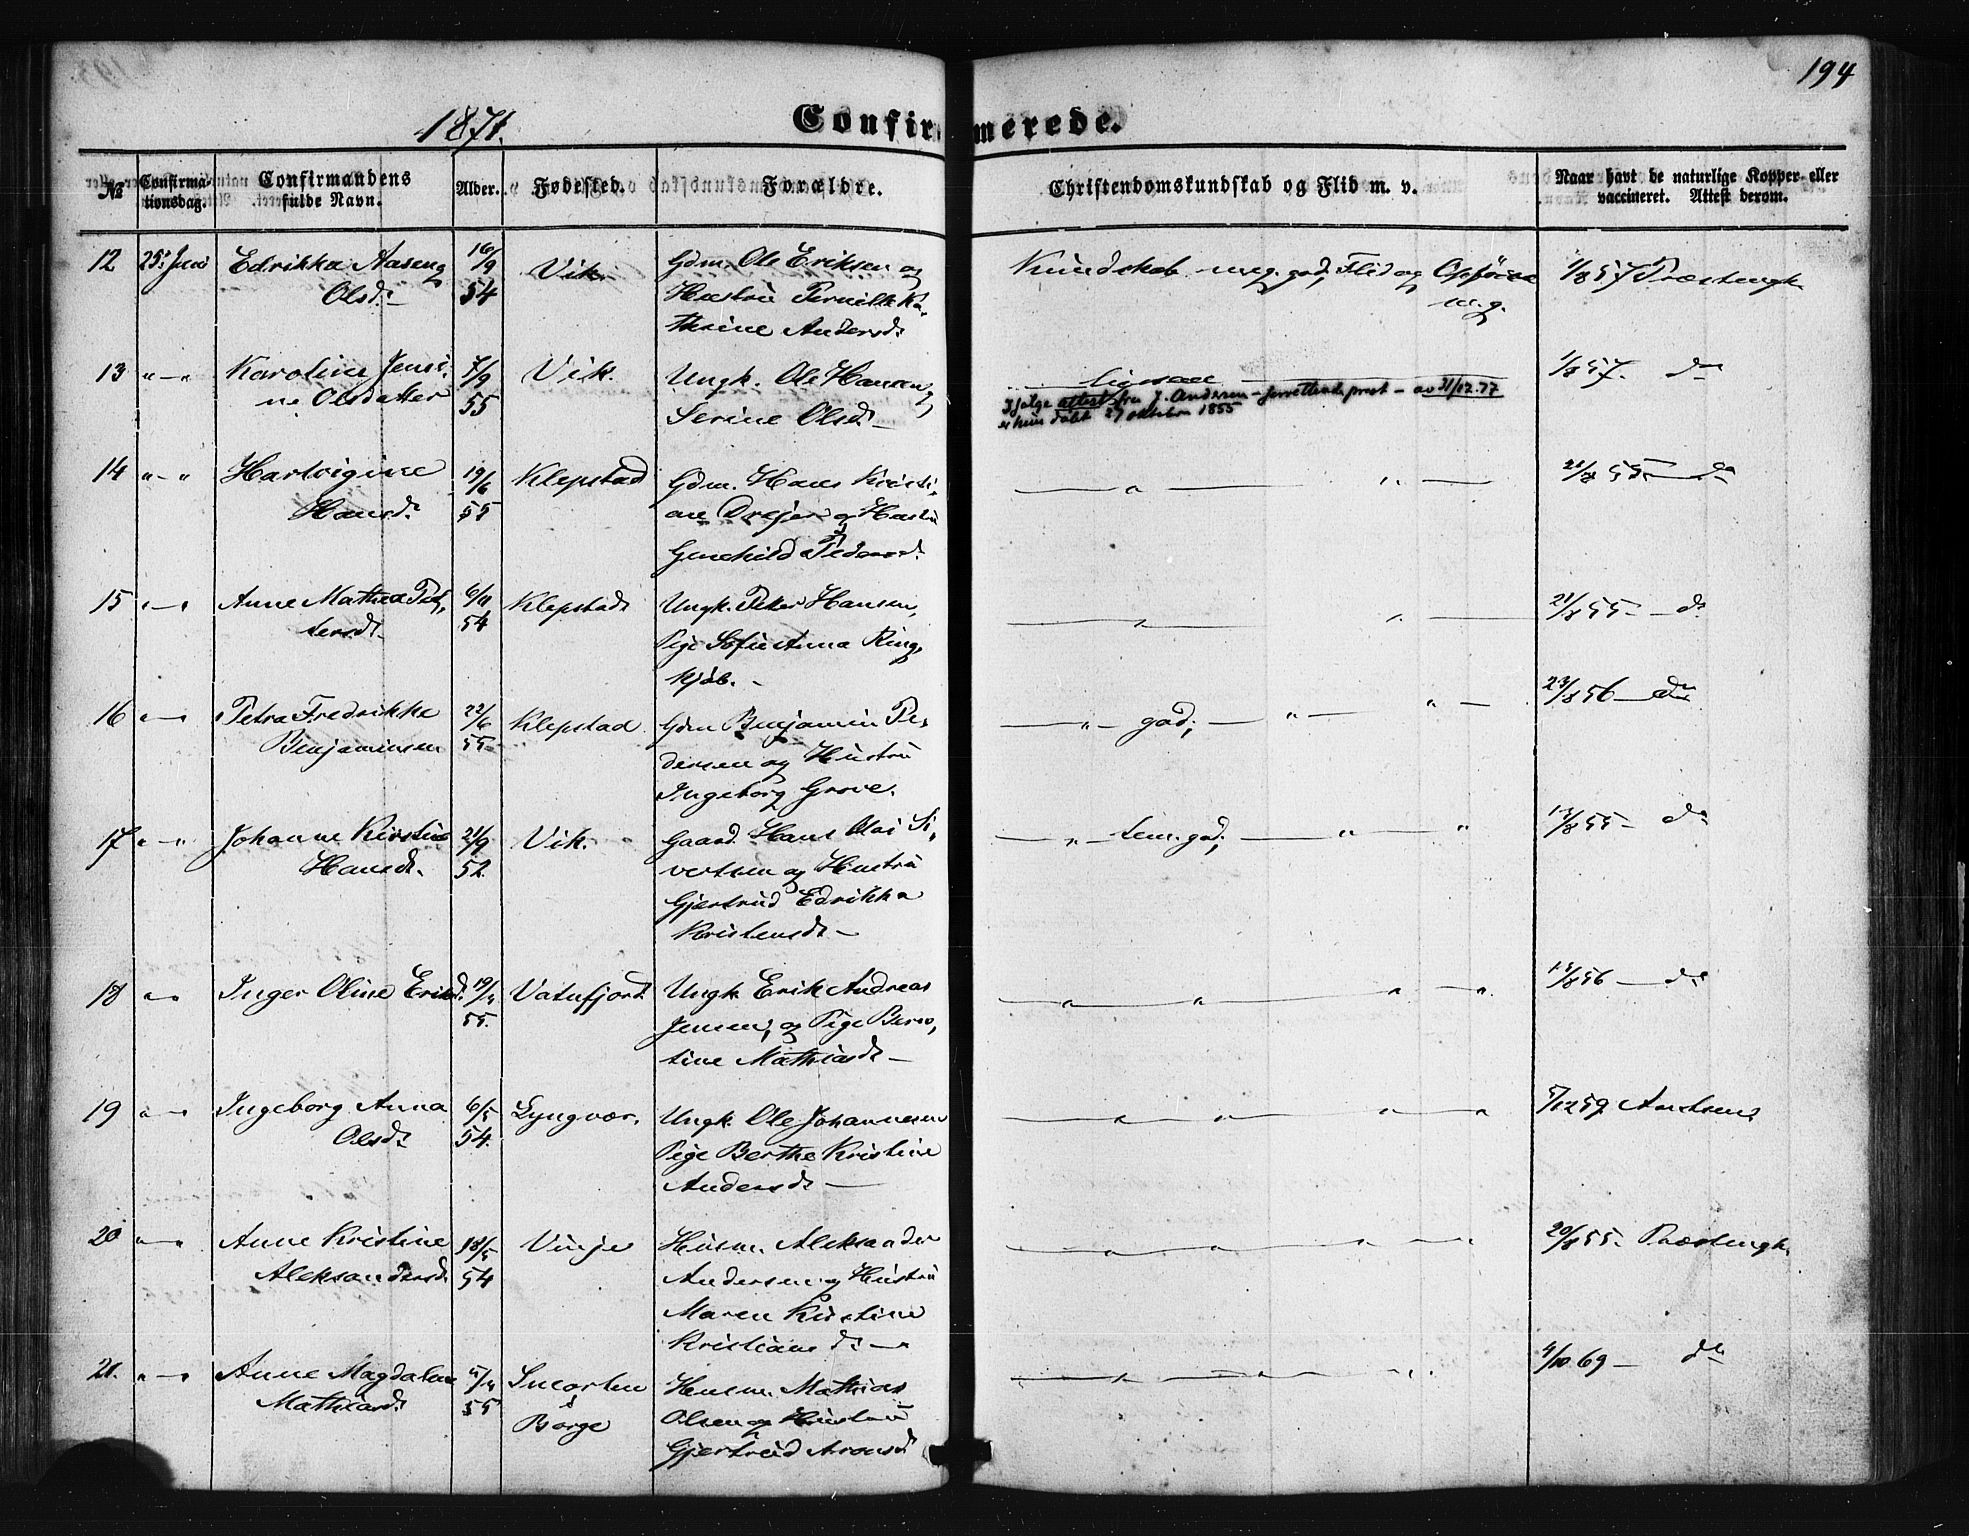 194
1871.
Confirmerede.
№
Confirmationsdag.
Confirmandens fulde Navn.
Alder.
Fødested.
Forældre.
Christendomskundskab og Flid m. v.
Naar havt de naturlige Kopper eller vaccineret. Attest derom.
12 25. Juni Edrikka Aaseng 16/9 Vik. Gdm. Ole Eriksen og Kundskab meg. god, Flid og Opførsel 1/8 57 Præstengk.
Olsd. 54 Hustru Pernille Ka- m. g.
thrine Andersd.
13 " — " Karoline Jensi- 7/9 Vik. Ungk. Ole Hansen, Ligesaa 1/8 57. do
ne Olsdatter 55 Serine Olsd. — Ifølge attest fra J. Andersen – forrettende prest – av 31/12.77
er hun døbt 27 oktober 1855
14 " — " Hartvigine 19/6 Klepstad Gdm. Hans Kristi- — " — " — 21/8 55 — do
Hansd. 55 ane Drejer og Hustru
Gunehild Pedersd.
15 " — " Anne Mathea Pet- 6/11 Klepstad Ungk. Peter Hansen, — " — " — 21/8 55 — do
tersd. 54 Pige Sofie Anna Ring-
kjøb. —
16 " — " Petra Fredrikke 22/6 Klepstad Gdm Benjamin Pe- — " — god; — " — " — 23/8 56 — do
Benjaminsen 55 dersen og Hustru
Ingeborg Grove.
17 " — " Johanne Kirstine 21/9 Vik. Gaard. Hans Olai Si- — " — tem. god; — " — " 13/8 55 — do
Hansd. 52. vertsen og Hustru
Gjertrud Edrikka
Kristensd. —
18 " — " Inger Oline Eriksd. 19/4 Vatnfjord. Ungk. Erik Andreas — " — " — " — ". 14/8 56 — do
55. Jensen, og Pige Beret-
tine Mathiasd. —
19 " — " Ingeborg Anna 6/5 Lyngvær. Ungk. Ole Johannesen — " — " — " — " 5/12 59 Arntsens
Olsd. 54. Pige Berthe Kristine
Andersd. —
20 " — " Anne Kristine 18/5 Vinje Husm. Aleksander — " — " — " — " 20/8 55. Præstengk.
Aleksandersd. 54 Andersen og Hustru
Maren Kirstine
Kristiansd. —
21. " — " Anne Magdalene 5/4 Husm. Mathias — " — " — " — " 9/10 69 — do
Mathiasd. 55 Borge Olsen og Hustru
Gjertrud Aronsd.